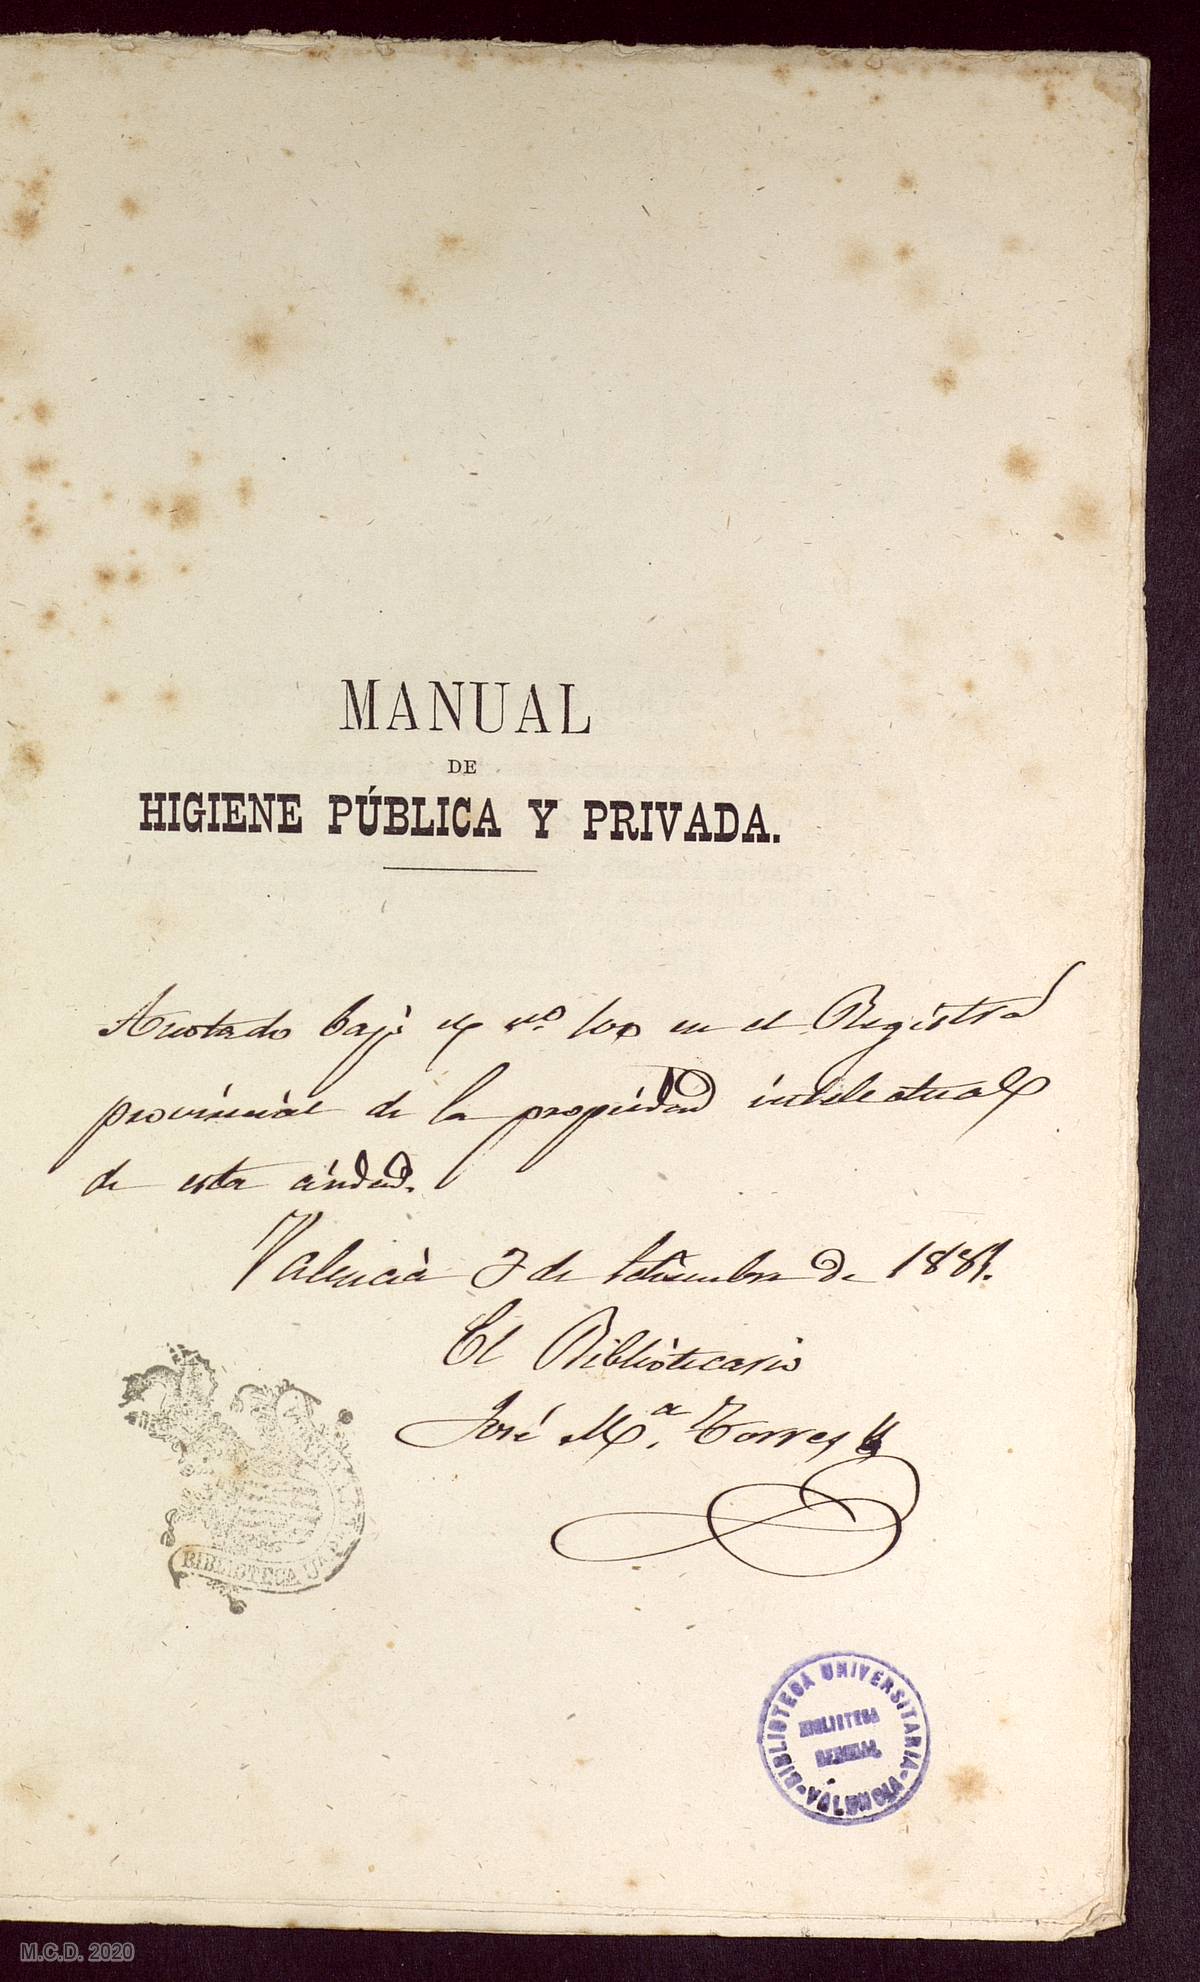 MANUAL
DE
HIGIENE PÚBLICA Y PRIVADA.
Anotado bajo el nº. 100 en el Registro
provincial de la propiedad intelectual
de esta ciudad.
Valencia 7 de Setiembre de 1881.
El Bibliotecario
José Mª. Torres
BIBLIOTECA
BIBLIOTECA UNIVERSITARIA
BIBLIOTECA
VALENCIA
M.C.D. 2020